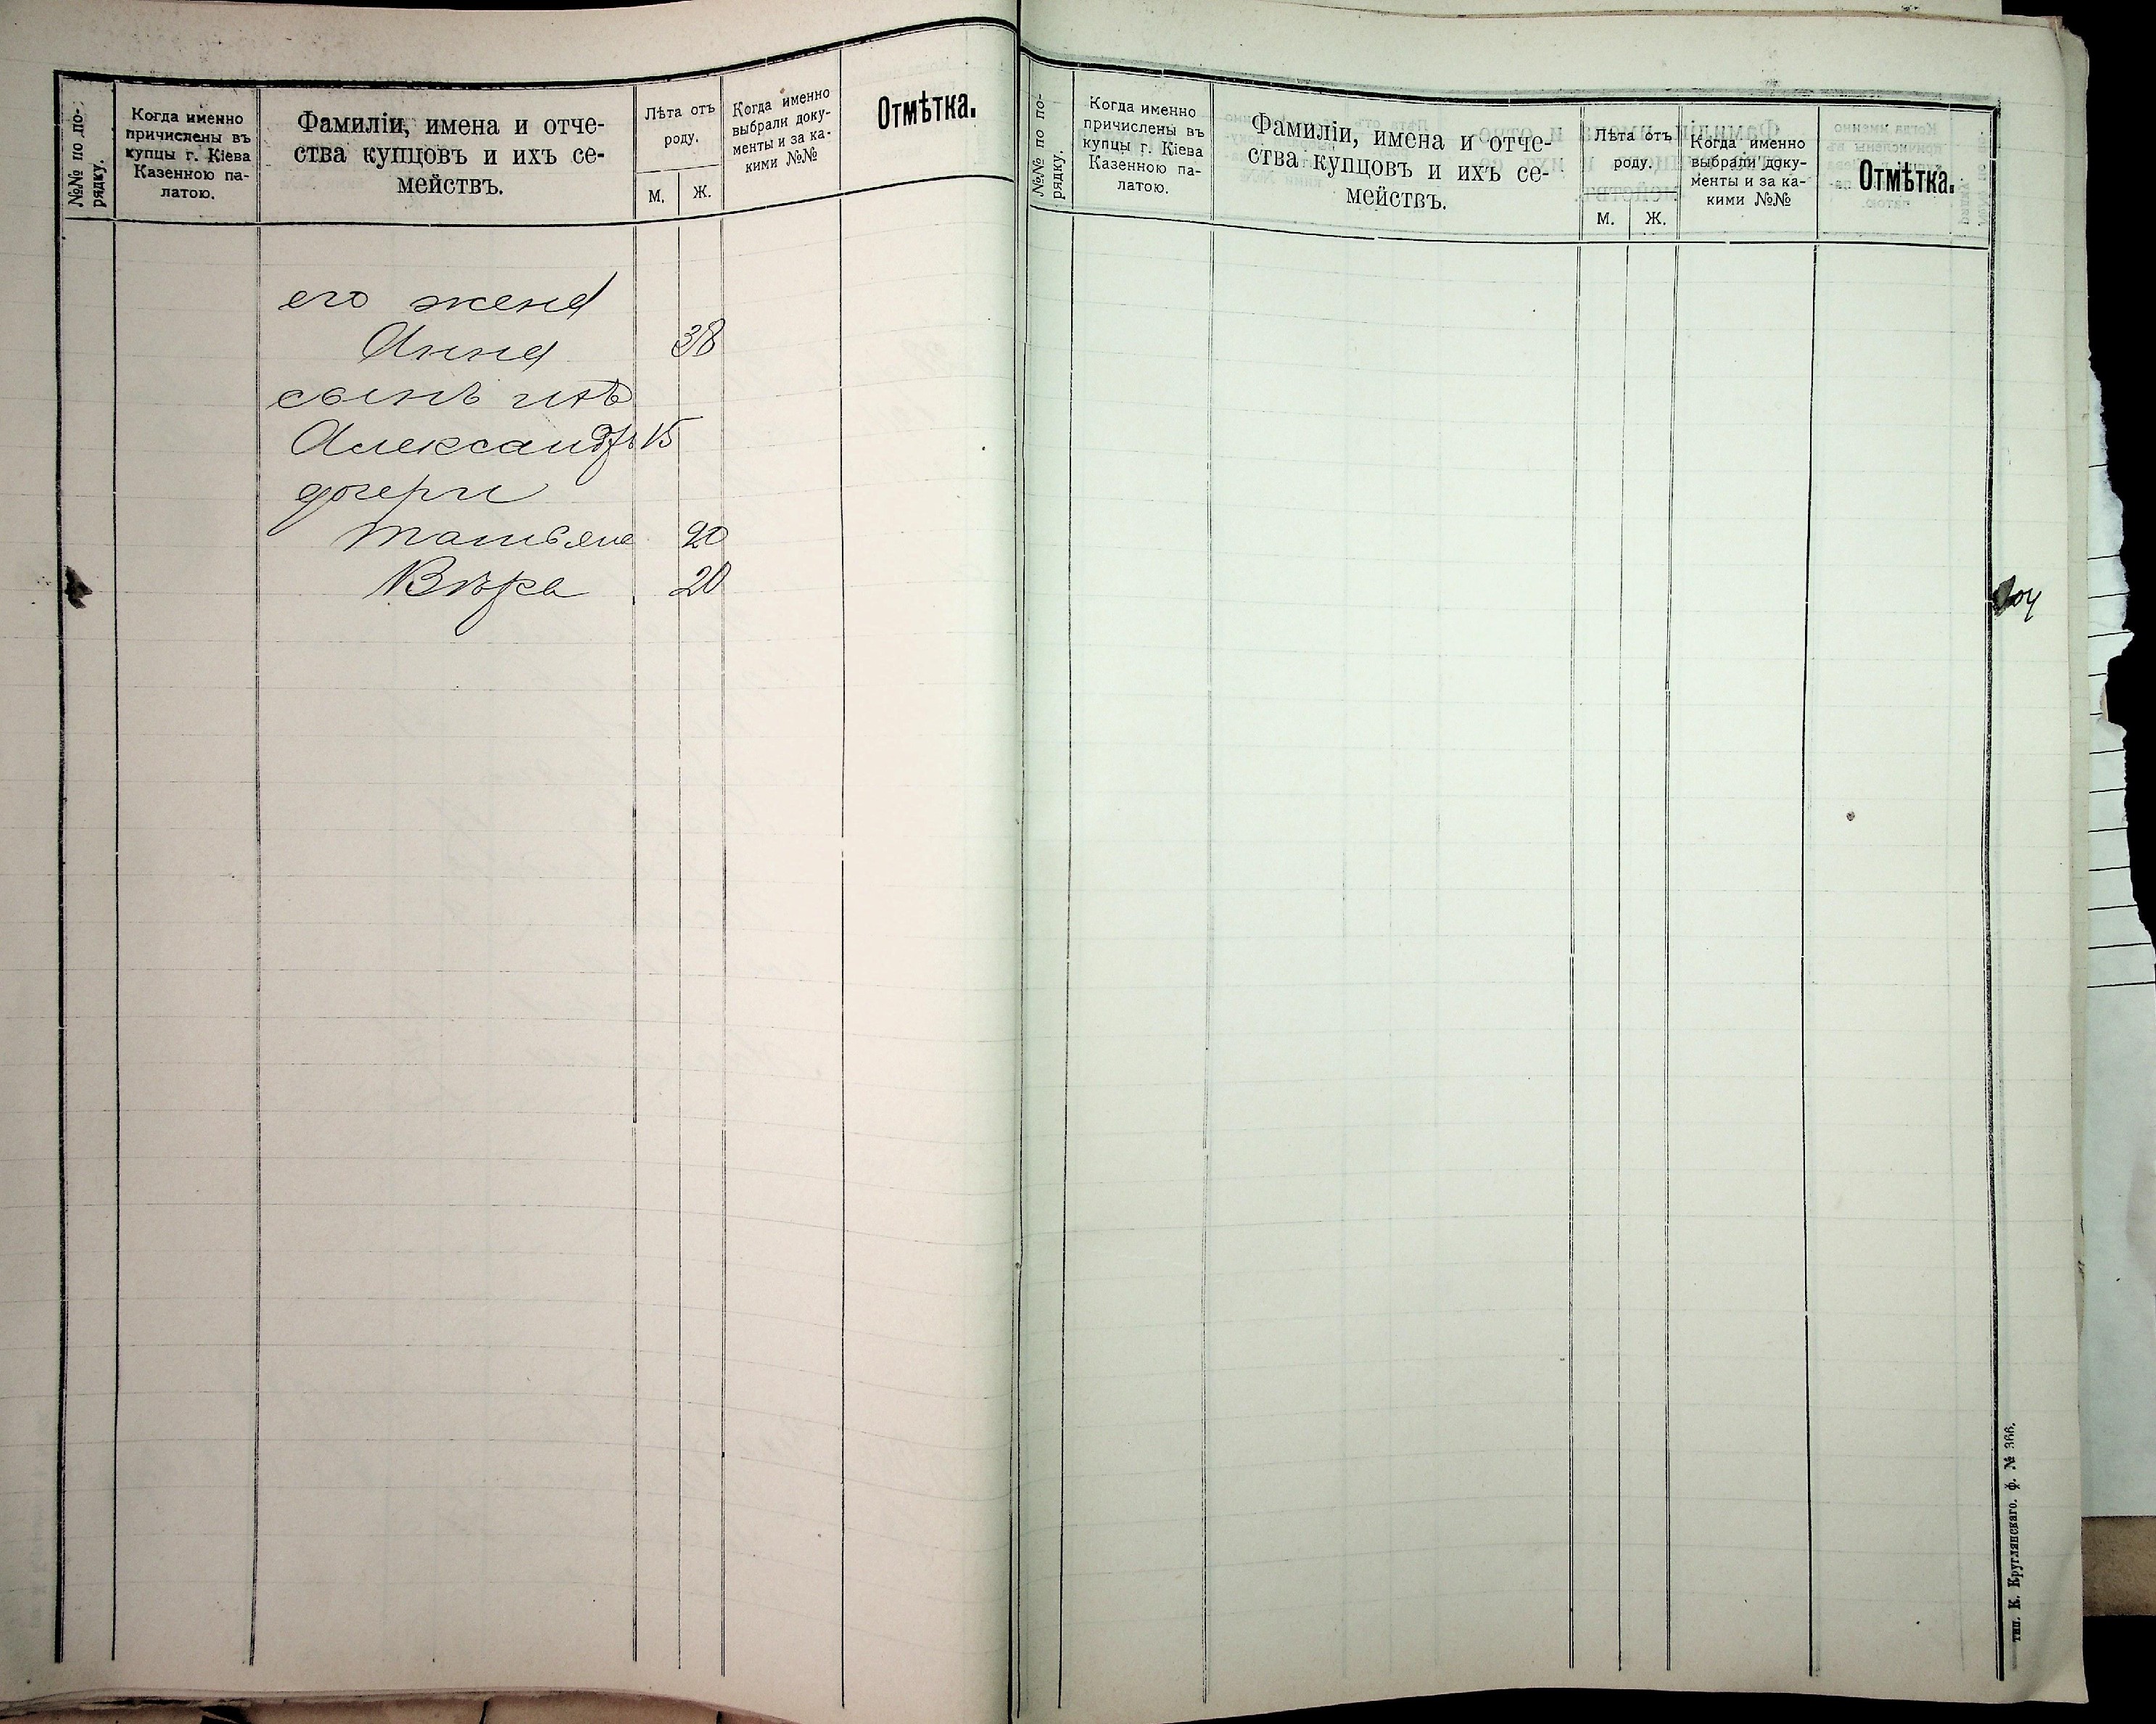 №№ по по-
рядку.
Когда именно
причислены въ
купцы г. Кіева
Казенною па-
латою.
Фамиліи, имена и отче-
ства купцовъ и ихъ се-
мействъ.
Лѣта отъ
роду.
М.
Ж.
Когда именно
выбрали доку-
менты и за ка-
кими №№
Отмѣтка.
его жена
Анна 38
сынъ ихъ
Александръ 15
дочери
Татьяна 20
Вѣра 20
№№ по по-
рядку.
Когда именно
причислены въ
купцы г. Кіева
Казенною па-
латою.
Фамиліи, имена и отче-
ства купцовъ и ихъ се-
мействъ.
Лѣта отъ
роду.
М.
Ж.
Когда именно
выбрали доку-
менты и за ка-
кими №№
Отмѣтка.
тип. К. Круглянскаго. ф. № 366.